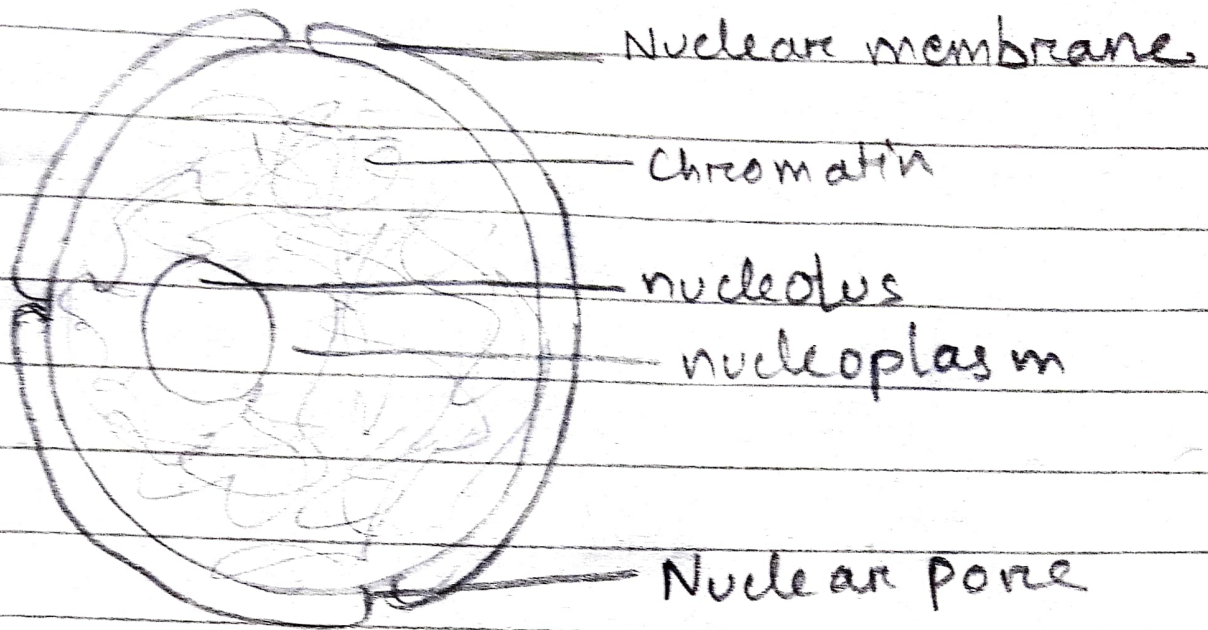 Nuclear membrane
Chromatin
nucleolus
nucleoplasm
Nuclear pore